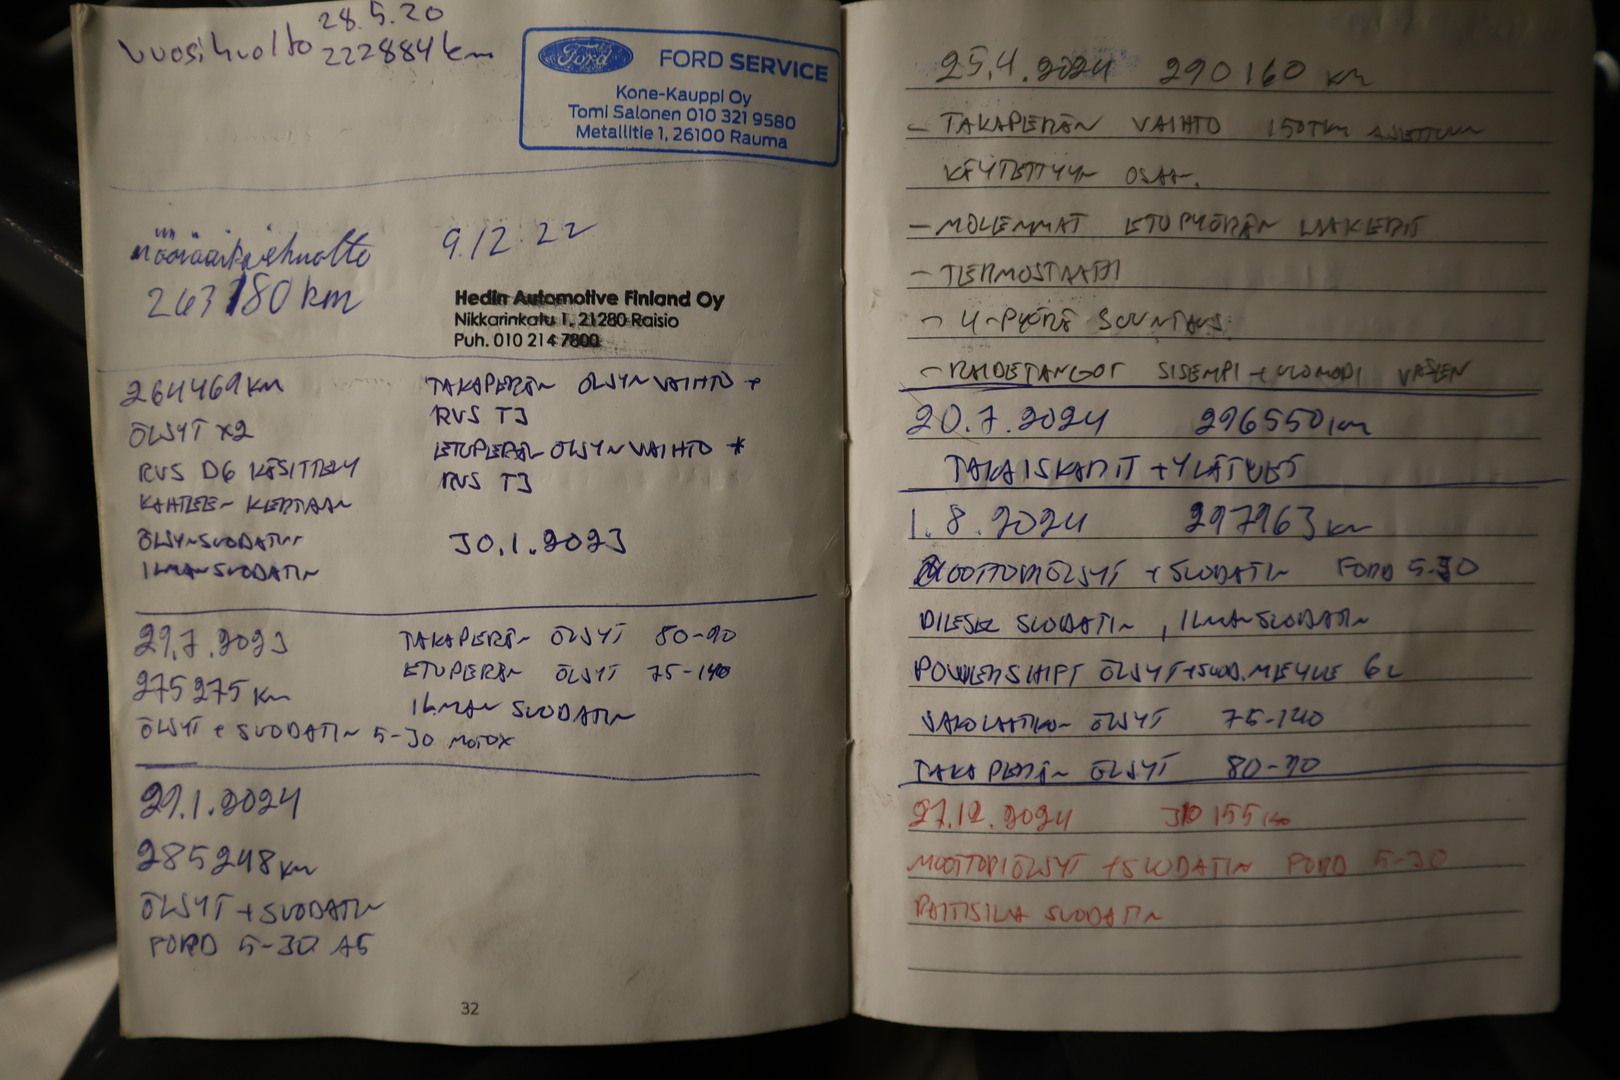 28.5.20
Vuosihuolto 222884 km
Ford
FORD SERVICE
Kone-Kauppi Oy
Tomi Salonen 010 321 9580
Metallitie 1, 26100 Rauma
määräaikaishuolto 9.12.22
263180 km
Hedin Automotive Finland Oy
Nikkarinkatu 1, 21280 Raisio
Puh. 010 214 7800
264469 KM
ÖLJYT X2
RVS D6 KÄSITTELY
KAHTEEN KERTAAN
ÖLJYNSUODATIN
ILMANSUODATIN
TAKAPERÄN ÖLJYN VAIHTO +
RVS T3
ETUPERÄN ÖLJYN VAIHTO *
RVS T3
30.1.2023
29.7.2023
275275 KM
ÖLJYT + SUODATIN 5-30 MOTOX
TAKAPERÄN ÖLJYT 80-90
ETUPERÄN ÖLJYT 75-140
ILMAN SUODATIN
29.1.2024
285248 KM
ÖLJYT + SUODATIN
FORD 5-30 A5
32
25.4.2024 290160 KM
- TAKAPERÄN VAIHTO 150TKM AJETTUUN
KÄYTETTYYN OSAAN.
- MOLEMMAT ETUPYÖRÄN LAAKERIT
- TERMOSTAATTI
- 4-PYÖRÄ SUUNTAUS
- RAIDETANGOT SISEMPI + ULOMPI VASEN
20.7.2024 296550 KM
TAKAISKARIT + YLÄTUET
1.8.2024 297963 KM
MOOTTORIÖLJYT + SUODATIN FORD 5-30
DIESEL SUODATIN, ILMANSUODATIN
POWERSHIFT ÖLJYT+SUOD. MEYLE 6L
JAKOLAATIKON ÖLJYT 75-140
TAKAPERÄN ÖLJYT 80-90
27.12.2024 310155 KM
MOOTTORIÖLJYT + SUODATIN FORD 5-30
RAITISILMA SUODATIN